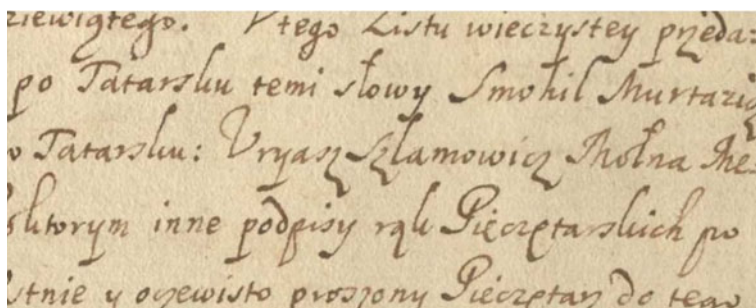 dziewiątego. U tego Listu wieczystey przeda:
po Tatarsku temi słowy Smohil Murtazicz
o Tatarsku: Uryasz Szlamowicz Mołna Me-
którym inne podpisy rąk Pieczętarskich po
ustnie y oczewisto proszony Pieczętarz do tego